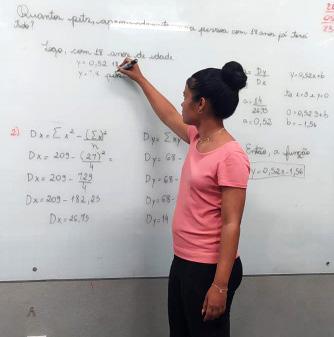 Quantos pets, aproximadamente a pessoa com 18 anos já terá
tido?
Logo, com 18 anos de idade
y = 0,52 . 18
y = 7,8
2) Dx = Σx² - (Σx)²
n
Dx = 209 - (27)² =
4
Dx = 209 - 729
4
Dx = 209 - 182,25
Dx = 26,75
Dy = Σxy
Dy = 68 -
Dy = 68 -
Dy = 68 -
Dy = 14
a = Dy
Dx
a = 14
26,75
a = 0,52
y = 0,52x + b
b = -1,56
Então, a função
y = 0,52x - 1,56